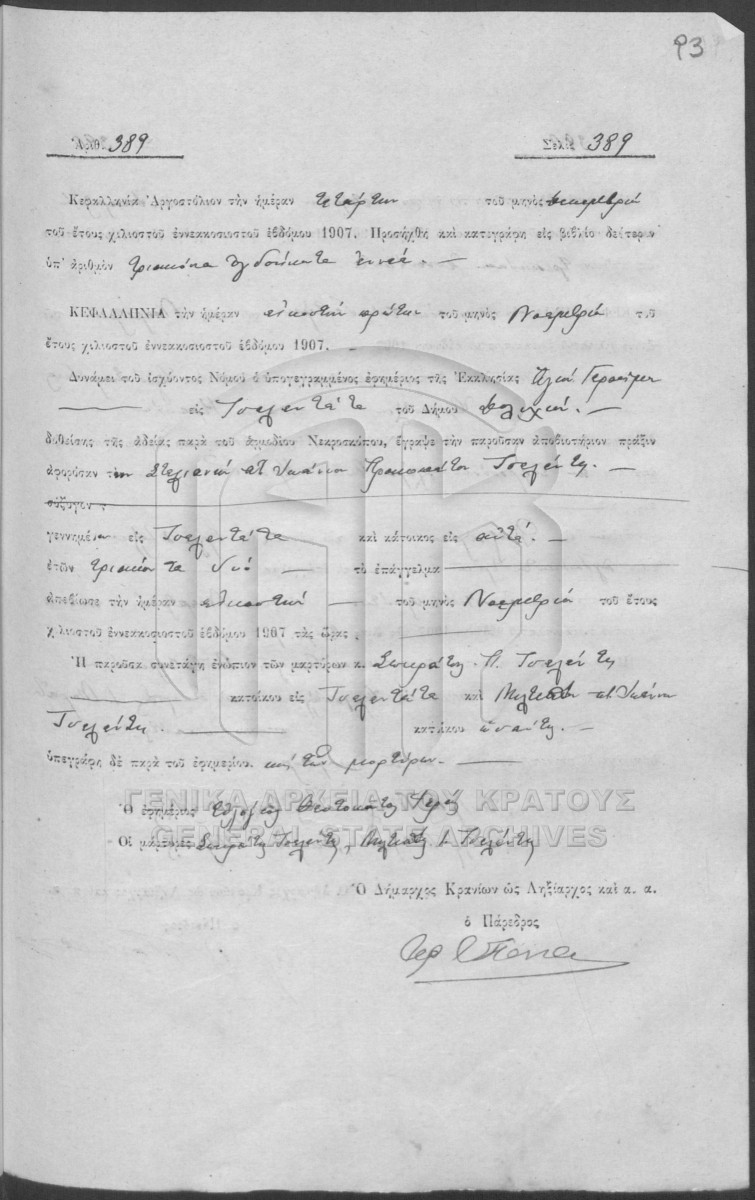 93
Ἀριθ. 389
Σελὶς 389
Κεφαλληνία Ἀργοστόλιον τὴν ἡμέραν τετάρτην τοῦ μηνὸς Δεκεμβρίου
τοῦ ἔτους χιλιοστοῦ ἐννεακοσιοστοῦ ἑβδόμου 1907. Προσήχθη καὶ κατεγράφη εἰς βιβλίο δεύτερον
ὑπ' ἀριθμὸν τριακόσια ὀγδοήκοντα ἐννέα. —
ΚΕΦΑΛΛΗΝΙΑ τὴν ἡμέραν εἰκοστὴν πρώτην τοῦ μηνὸς Νοεμβρίου τοῦ
ἔτους χιλιοστοῦ ἐννεακοσιοστοῦ ἑβδόμου 1907.
Δυνάμει τοῦ ἰσχύοντος Νόμου ὁ ὑπογεγραμμένος ἐφημέριος τῆς Ἐκκλησίας Ἁγίου Γερασίμου
εἰς Τσελεντάτα τοῦ Δήμου
δοθείσης τῆς ἀδείας παρὰ τοῦ ἁρμοδίου Νεκροσκόπου, ἔγραψε τὴν παροῦσαν ἀποβιοτήριον πρᾶξιν
ἀφορῶσαν τὴν Στυλιανὴν Τσελέντη. —
σύζυγον
γεννημένην εἰς Τσελεντάτα καὶ κάτοικος εἰς αὐτά. —
ἐτῶν τριάκοντα δύο — τὸ ἐπάγγελμα —
ἀπεβίωσε τὴν ἡμέραν εἰκοστὴν — τοῦ μηνὸς Νοεμβρίου τοῦ ἔτους
χιλιοστοῦ ἐννεακοσιοστοῦ ἑβδόμου 1907 τὰς ὥρας
Ἡ παροῦσα συνετάχη ἐνώπιον τῶν μαρτύρων κ. Σωκράτη Π. Τσελέντη
κατοίκου εἰς Τσελεντάτα καὶ Μιλτιάδη
Τσελέντη. — κατοίκου ὡσαύτως. —
ὑπεγράφη δὲ παρὰ τοῦ ἐφημερίου. καὶ τῶν μαρτύρων. —
ΓΕΝΙΚΑ ΑΡΧΕΙΑ ΤΟΥ ΚΡΑΤΟΥΣ
GENERAL STATE ARCHIVES
Ὁ ἐφημέριος
Οἱ μάρτυρες Σωκράτης Τσελέντης, Μιλτιάδης Τσελέντης
Ὁ Δήμαρχος Κρανίων ὡς Ληξίαρχος καὶ α. α.
ὁ Πάρεδρος